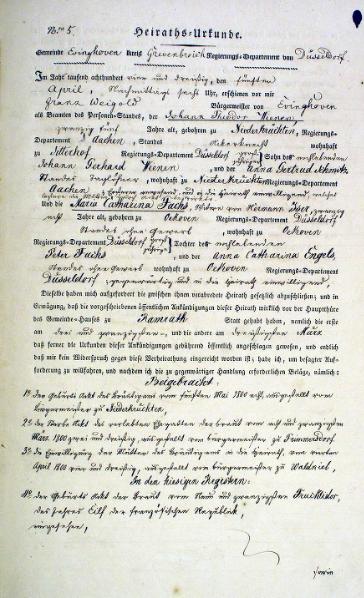 Nro 5. Heiraths-Urkunde.
Gemeinde Evinghoven Kreis Grevenbroich Regierungs-Departement von Düsseldorf.
Im Jahr tausend achthundert vier und dreißig, den fünften
April, Nachmittags sechs Uhr, erschienen vor mir
Franz Weigold Bürgermeister von Evinghoven
als Beamten des Personen-Standes, der Johann Theodor Vienen,
zwanzig fünf Jahre alt, gebohren zu Niederkrüchten, Regierungs-
Departement Aachen, Standes Ackerknecht, wohnhaft
zu Regierungs-Departement Düsseldorf Sohn des
Johann Gerhard Vienen und der Anna Gertrud Schmitz
Standes Tagelöhner, wohnhaft zu Niederkrüchten Regierungs-Departement
Aachen
und die Maria Catharina Fuchs, Wittwe von Hermann zwanzig
acht Jahre alt, gebohren zu Oekoven Regierungs-Departement Düsseldorf,
Standes ohne Gewerb, wohnhaft zu Oekoven
Regierungs-Departement Düsseldorf Tochter des
Peter Fuchs und der Anna Catharina Engels,
Standes ohne Gewerb wohnhaft zu Oekoven Regierungs-Departement
Düsseldorf, gegenwärtig und in die Heirath einwilligend,
Dieselbe haben mich aufgefordert die zwischen ihnen verabredete Heirath gesetzlich abzuschließen; und in
Erwägung, daß die vorgeschriebenen öffentlichen Ankündigungen dieser Heirath wirklich vor der Hauptthüre
des Gemeinde-Hauses zu Ramrath Statt gehabt haben, nemlich die erste
am drei und zwanzigsten, und die andere am dreißigsten März
daß ferner die Urkunden dieser Ankündigungen gebührend öffentlich angeschlagen gewesen, und endlich
daß mir kein Widerspruch gegen diese Verheirathung eingereicht worden ist; habe ich, um besagter Auf-
forderung zu willfahren, und nachdem ich die zu gegenwärtiger Handlung erforderlichen Beläge, nämlich:
Beigebrachet
1o der Geburts Akt des Bräutigams vom fünften Mai 1800 acht, ausgestellt vom
Bürgermeister zu Niederkrüchten,
2o der Sterbe Akt des verlebten Ehegatten der Braut vom acht und zwanzigsten
März 1800 zwei und dreißig, ausgestellt vom Bürgermeister zu
3o die Einwilligung der Mutter des Bräutigams in die Heirath, vom vierten
April 1800 vier und dreißig, ausgestellt vom Bürgermeister zu Waldniel,
In den hiesigen Registern:
4o der Geburts Akt der Braut vom Neun und zwanzigsten Fructidor,
des Jahres Eilf der französischen Republik,
eingesehen,
sowie